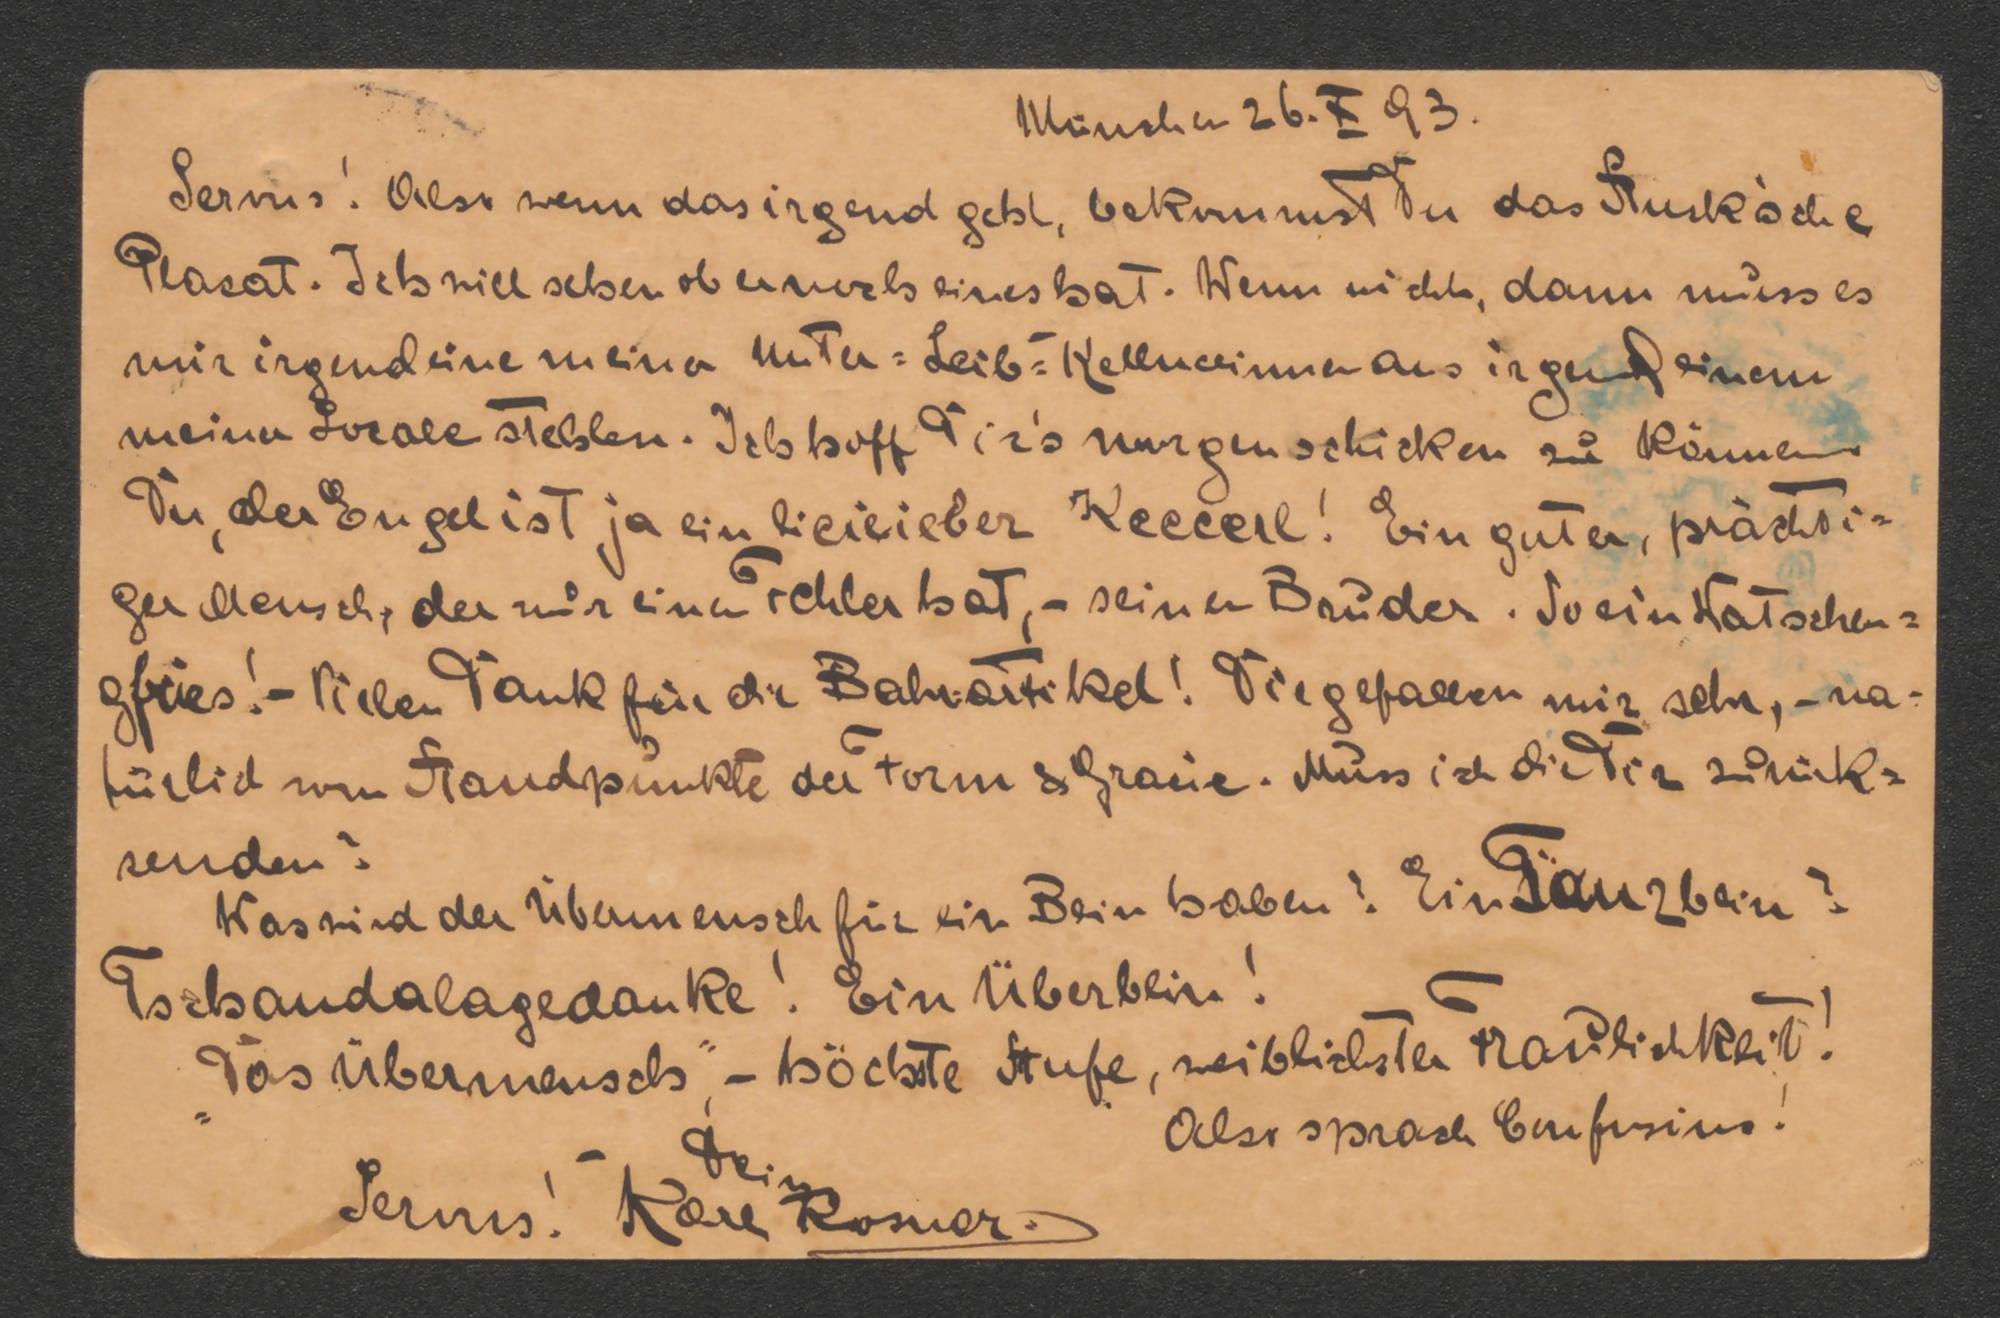 München 26. X 93.
Servus! Also wenn das irgend geht, bekommst Du das Stuck'sche
Placat. Ich will sehen ob er noch eines hat. Wenn nicht, dann muss es
mir irgend eine meiner Unter=Leib=Kellnerinnen aus irgend einem
meiner Locale stehlen. Ich hoff Dir's morgen schicken zu können.
Du, der Engel ist ja ein lieieieber Keeeerl! Ein guter, prächti=
ger Mensch, der nur einen Fehler hat, – seinen Bruder. So ein Watschen=
gfries! – Vielen Dank für die Bahrartikel! Die gefallen mir sehr, – na-
türlich vom Standpunkte der Form & Grazie. Muss ich die Dir zurück=
senden?
Was wird der Übermensch für ein Bein haben? Ein Tanzbein?
Tschandalagedanke! Ein Überbein!
"Das Übermensch" – höchste Stufe, weiblichster Fraulichkeit!
Also sprach Confusius!
Servus! – Dein
Karl Rosner.